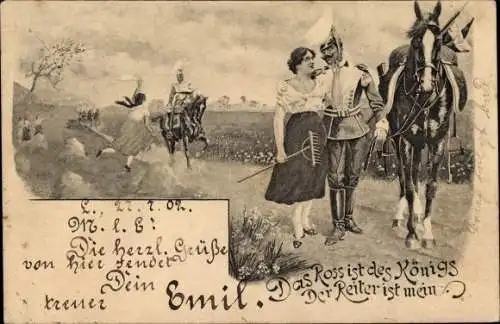 L., 27.7.02.
M. l. E:
Die herzl. Grüße
von hier sendet
Dein
treuer Emil.
Das Ross ist des Königs
Der Reiter ist mein